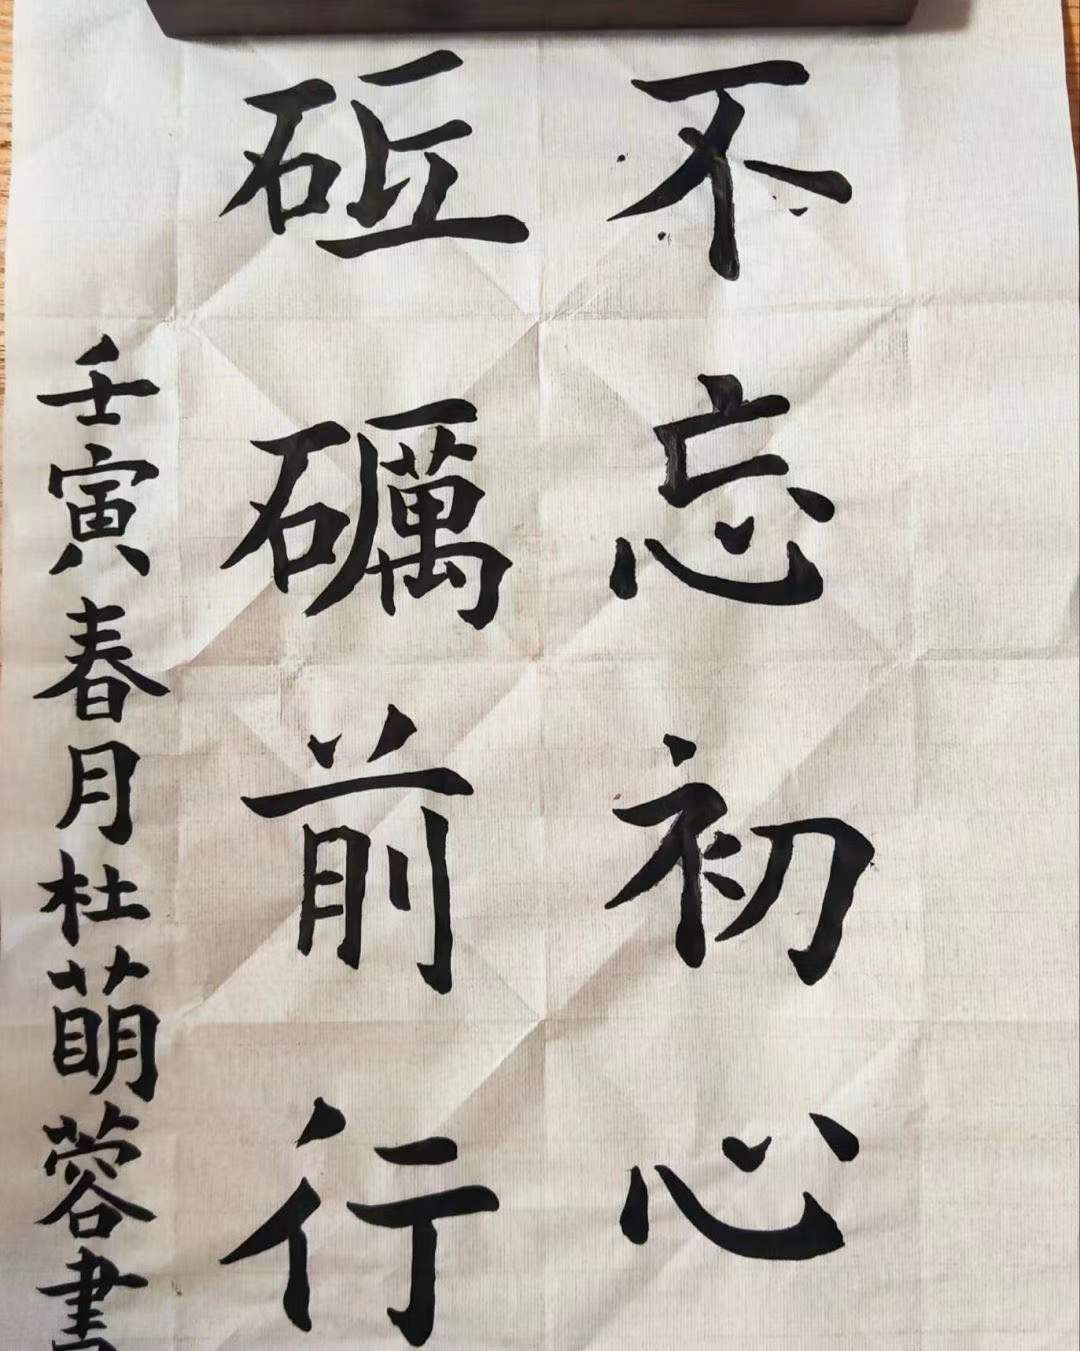 不忘初心
砥礪前行
壬寅春月杜萌蓉書